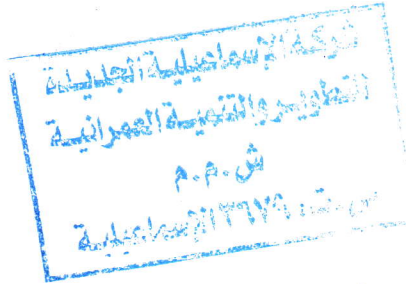 شركة الإسماعيلية الجديدة
للتطوير والتنمية العمرانية
ش.م.م
س.ت: ٣٦٩٧٩ الإسماعيلية